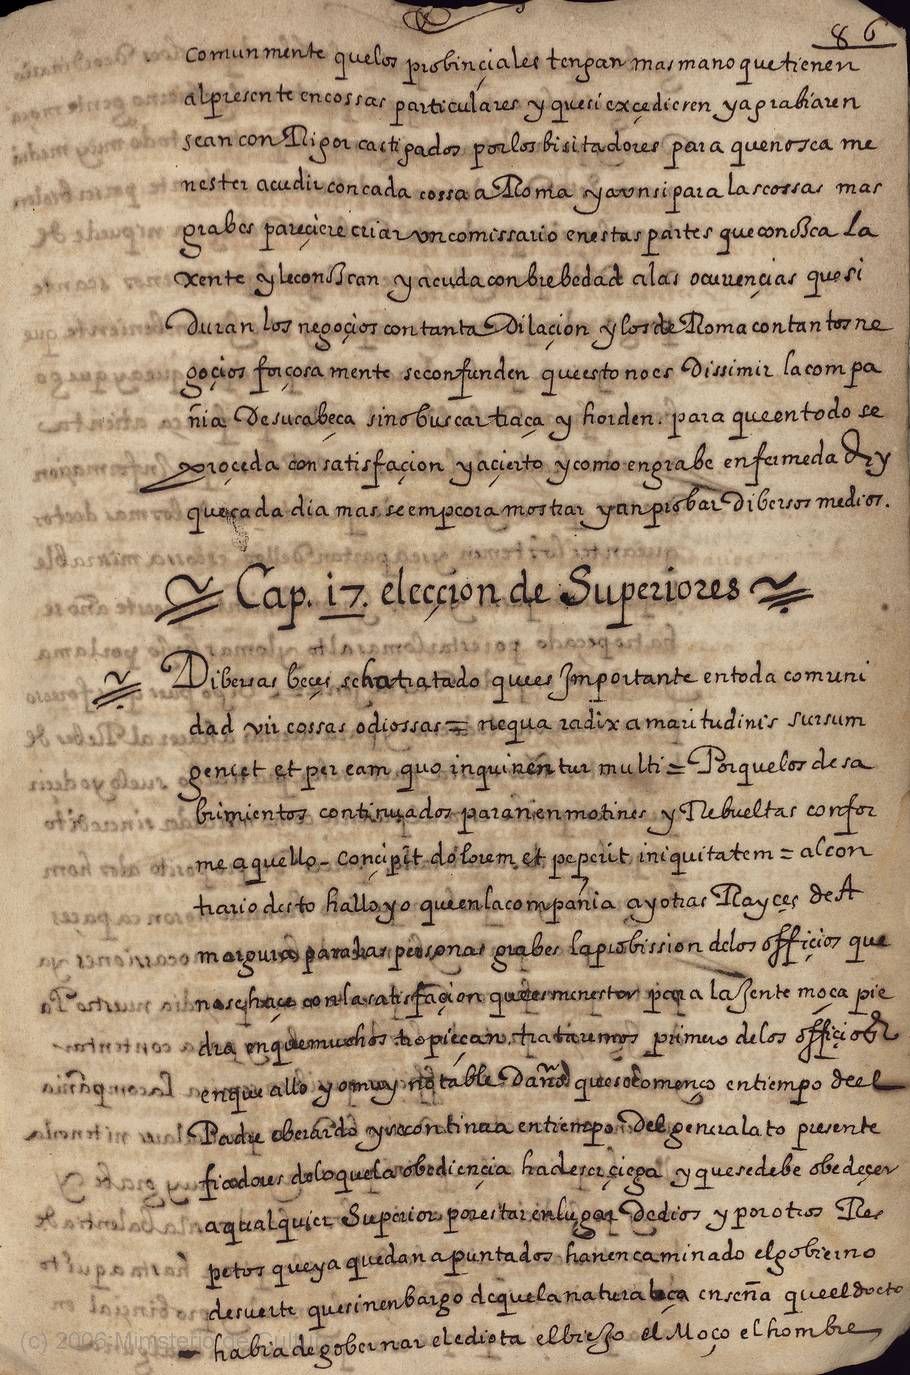 86
comunmente quelos probinçiales tengan mas mano que tienen
al presente en cossas particulares y que si exçedieren y agrabiaren
sean con Rigor castigados por los bisitadores para que no sea me
nester acudir con cada cossa a Roma y aun si para las cossas mas
grabes pareçiere criar un comissario en estas partes que conozca la
xente y le conozcan y acuda con brebedad a las ocurrençias que si
Duran los negoçios con tanta Dilaçion y los de Roma con tantos ne
goçios forçosamente se confunden que esto no es Dissimir la compa
ñia De su cabeça sino buscar traça y horden. para que en todo se
proçeda con satisfaçion y açierto y como en grabe enfermedad Rey
que cada dia mas se empeora mostrar y an probar Dibersos medios.
Cap. 17. elecçion de Superiores
Dibersas beçes se ha tratado que es Importante en toda comuni
dad vir cossas odiossas = nequa radix amaritudinis sursum
geniet et per eam quo inquinentur multi = Porque los desa
brimientos continuados paran en motines y Rebueltas confor
me aquello - Conçipit dolorem et peperit iniquitatem = al con
trario desto hallo yo que en la compañia ay otras Rayçes de A
margura para las personas grabes la probission delos offiçios que
no se haçe con la satisfaçion que es menester para la Jente moça pie
dra en que muchos tropieçan. trataremos primero de los offiçios
en que allo yo muy notable Daño que se començo en tiempo del
Padre eberardo y se continua en tiempo Del generalato presente
fiadores de lo que la obediençia ha de ser çiega y que se debe obedeçer
a qualquier Superior por estar en lugar De dios y por otros Res
petos que ya quedan apuntados han encaminado el gobierno
de suerte que sin enbargo de que la naturaleça enseña que el docto
habia de gobernar el ediota el biejo el Moço el hombre
(c) 2006 Ministerio de Cultura